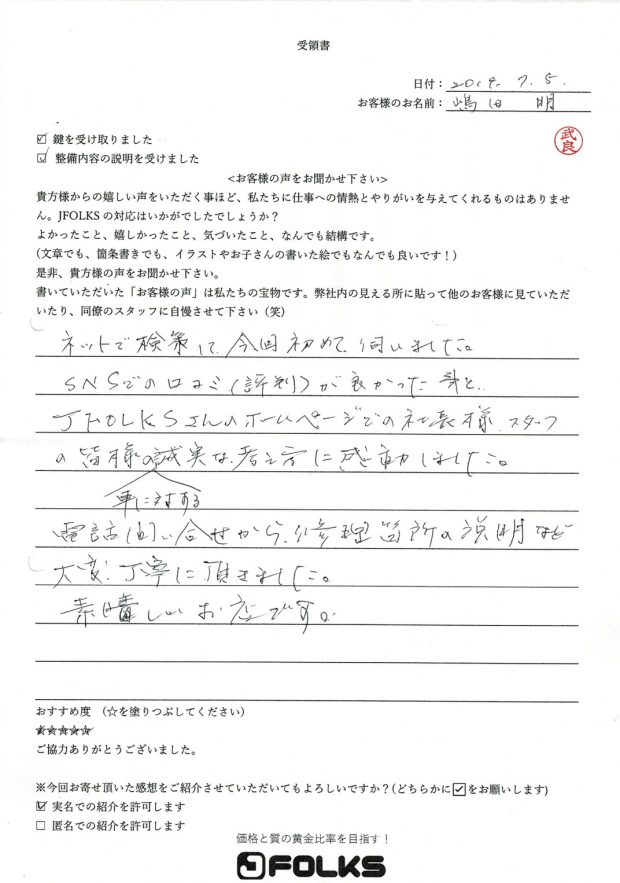 受領書
日付：2019. 7. 5.
お客様のお名前：嶋田 明
武良
☑ 鍵を受け取りました
☑ 整備内容の説明を受けました
<お客様の声をお聞かせ下さい>
貴方様からの嬉しい声をいただく事ほど、私たちに仕事への情熱とやりがいを与えてくれるものはありませ
ん。JFOLKSの対応はいかがでしたでしょうか？
よかったこと、嬉しかったこと、気づいたこと、なんでも結構です。
(文章でも、箇条書きでも、イラストやお子さんの書いた絵でもなんでも良いです！)
是非、貴方様の声をお聞かせ下さい。
書いていただいた「お客様の声」は私たちの宝物です。弊社内の見える所に貼って他のお客様に見ていただ
いたり、同僚のスタッフに自慢させて下さい（笑）
ネットで検索して、今回初めて伺いました。
SNSでの口コミ(評判)が良かった事と、
JFOLKSさんのホームページでの社長様、スタッフ
の皆様の誠実な考え方に感動しました。
車に対する
電話問い合せから、修理箇所の説明など
大変丁寧に頂きました。
素晴しいお店です。
おすすめ度 （☆を塗りつぶしてください）
★★★★★
ご協力ありがとうございました。
※今回お寄せ頂いた感想をご紹介させていただいてもよろしいですか？(どちらかに☑をお願いします)
☑ 実名での紹介を許可します
□ 匿名での紹介を許可します
価格と質の黄金比率を目指す！
JFOLKS